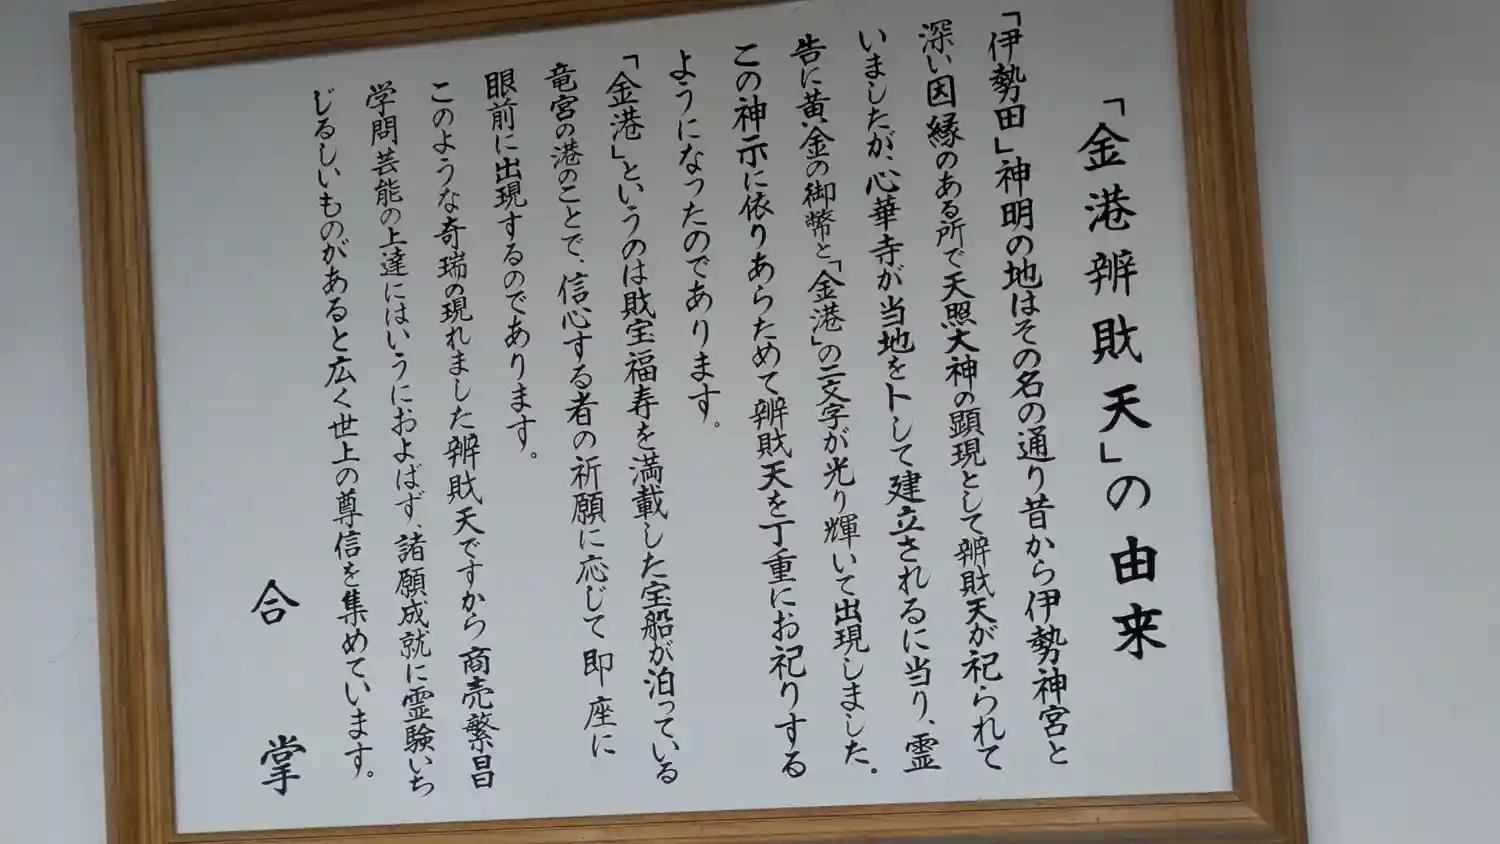 「金港辨財天」の由来
「伊勢田」神明の地はその名の通り昔から伊勢神宮と
深い因縁のある所で天照大神の顕現として辨財天が祀られて
いましたが、心華寺が当地を卜して建立されるに当り、霊
告に黄金の御幣と「金港」の二文字が光り輝いて出現しました。
この神示に依りあらためて辨財天を丁重にお祀りする
ようになったのであります。
「金港」というのは財宝福寿を満載した宝船が泊っている
竜宮の港のことで、信心する者の祈願に応じて即座に
眼前に出現するのであります。
このような奇瑞の現れました辨財天ですから商売繁昌
学問芸能の上達にはいうにおよばず、諸願成就に霊験いち
じるしいものがあると広く世上の尊信を集めています。
合掌